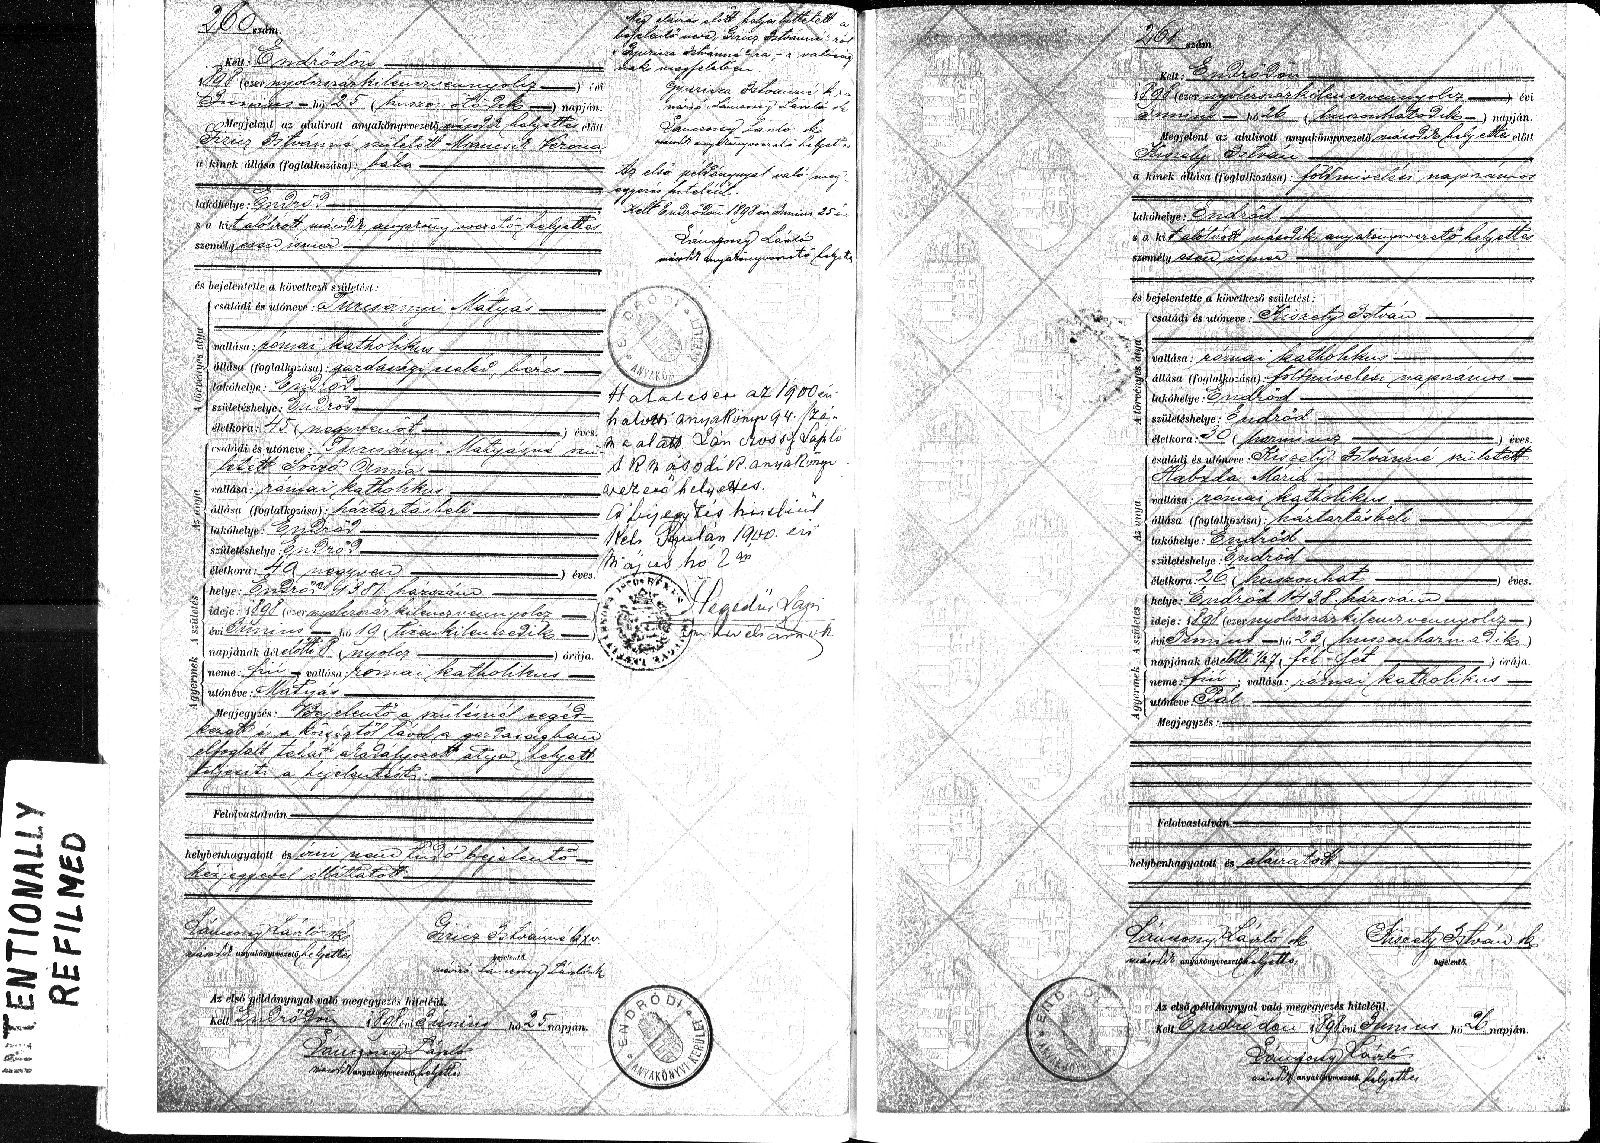 260 szám.
Kelt: Endrődön
1898 (ezernyolcszázkilencvennyolcz) évi
Június hó 25 (huszonötödik) napján.
Megjelent az alulirott anyakönyvvezető második helyettes előtt
Istvánné született Verona
a kinek állása (foglalkozása): bába
lakóhelye: Endrőd
s a kit alólirott második anyakönyvvezető helyettes
személyesen ismer
és bejelentette a következő születést:
A törvényes atyja
családi és utóneve: Turcsányi Mátyás
vallása: római katholikus
állása (foglalkozása): gazdasági cseléd, béres
lakóhelye: Endrőd
születéshelye: Endrőd
életkora: 45 (negyvenöt) éves.
Az anyja
családi és utóneve: Turcsányi Mátyásné szü-
letett Anna
vallása: római katholikus
állása (foglalkozása): háztartásbeli
lakóhelye: Endrőd
születéshelye: Endrőd
életkora: 40 negyven) éves.
A születés
helye: Endrőd 1301 házszám
ideje: 1898 (ezernyolcszázkilencvennyolcz
évi Június hó 19 (tizenkilencedik)
napjának délelőtti 8 (nyolcz) órája.
A gyermek
neme: fiú vallása: római katholikus
utóneve: Mátyás
Megjegyzés: Bejelentő a szülésnél segéd-
kezett és a községtől távol a gazdaságban
elfoglalt akadályozott atyja helyett
teljesíti a bejelentést.
Felolvastatván
helybenhagyatott és írni nem tudó bejelentő
kézjegyével elláttatott
Lánczony László sk
második anyakönyvvezető helyettes
Istvánné kxv
bejelentő.
Lánczony László sk
Az első példánynyal való megegyezés hiteléül.
Kelt Endrődön 1898 évi Június hó 25 napján.
Lánczony László
második anyakönyvvezető helyettes
ENDRŐDI ANYAKÖNYVI KERÜLET
Még aláírás előtt folya­ a
bejelentő neve Istvánné ról
Istvánné ra, a valóság
nak megfelelően
Istvánné k x v
Lánczony László sk
Lánczony László sk
második anyakönyvvezető helyettes
Az első példánynyal való meg-
egyezés hiteléül.
Kelt Endrődön 1898 évi Június 25 én
Lánczony László
második anyakönyvvezető helyettes
ENDRŐDI ANYAKÖNYVI KERÜLET
az 1900 évi
halotti anyakönyv 94. szá-
ma alatt László
sk második anyakönyv
vezető helyettes.
A bejegyzés hiteléül
Kelt Gyulán 1940. évi
Május hó 2 án
Hegedűs
261 szám
Kelt: Endrődön
1898 (ezernyolcszázkilencvennyolcz) évi
Június hó 26 (huszonhatodik) napján.
Megjelent az alulirott anyakönyvvezető második helyettes előtt
Kiszely István
a kinek állása (foglalkozása): földmivelési napszámos
lakóhelye: Endrőd
s a kit alólirott második anyakönyvvezető helyettes
személyesen ismer
és bejelentette a következő születést:
A törvényes atyja
családi és utóneve: Kiszely István
vallása: római katholikus
állása (foglalkozása): földmivelési napszámos
lakóhelye: Endrőd
születéshelye: Endrőd
életkora: 30 (harmincz) éves.
Az anyja
családi és utóneve: Kiszely Istvánné született
Mária
vallása: római katholikus
állása (foglalkozása): háztartásbeli
lakóhelye: Endrőd
születéshelye: Endrőd
életkora: 26 (huszonhat) éves.
A születés
helye: Endrőd 1438 házszám
ideje: 1898 (ezernyolcszázkilencvennyolcz)
évi Június hó 23 (huszonharmadik)
napjának délelőtti 1/2 7 (fél hét) órája.
A gyermek
neme: fiú; vallása: római katholikus
utóneve: Pál
Megjegyzés:
Felolvastatván
helybenhagyatott és aláiratott
Lánczony László sk
második anyakönyvvezető helyettes
Kiszely István sk
bejelentő.
Az első példánynyal való megegyezés hiteléül.
Kelt Endrődön 1898 évi Június hó 26 napján.
Lánczony László
második anyakönyvvezető helyettes
TENTIONALLY
REFILMED